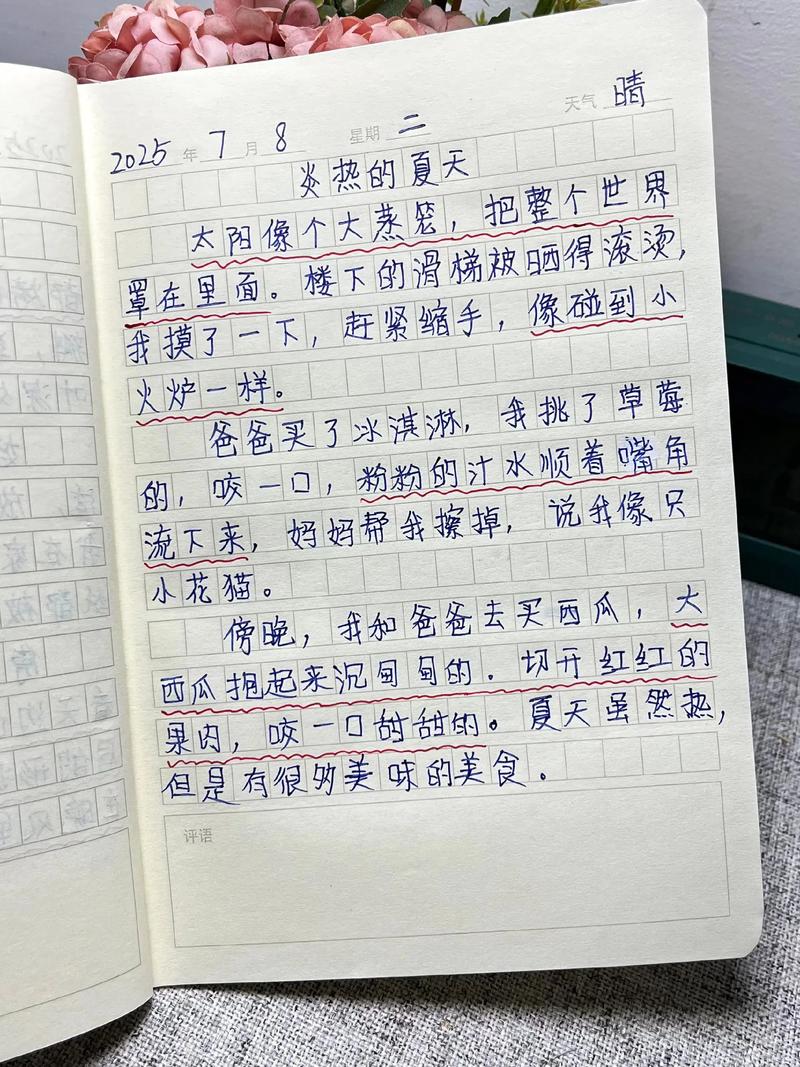 2025 年 7 月 8 星期 二 天气 晴
炎热的夏天
太阳像个大蒸笼，把整个世界
罩在里面。楼下的滑梯被晒得滚烫，
我摸了一下，赶紧缩手，像碰到小
火炉一样。
爸爸买了冰淇淋，我挑了草莓
的，咬一口，粉粉的汁水顺着嘴角
流下来，妈妈帮我擦掉，说我像只
小花猫。
傍晚，我和爸爸去买西瓜，大
西瓜抱起来沉甸甸的．切开红红的
果肉，咬一口甜甜的。夏天虽然热，
但是有很多美味的美食．
评语